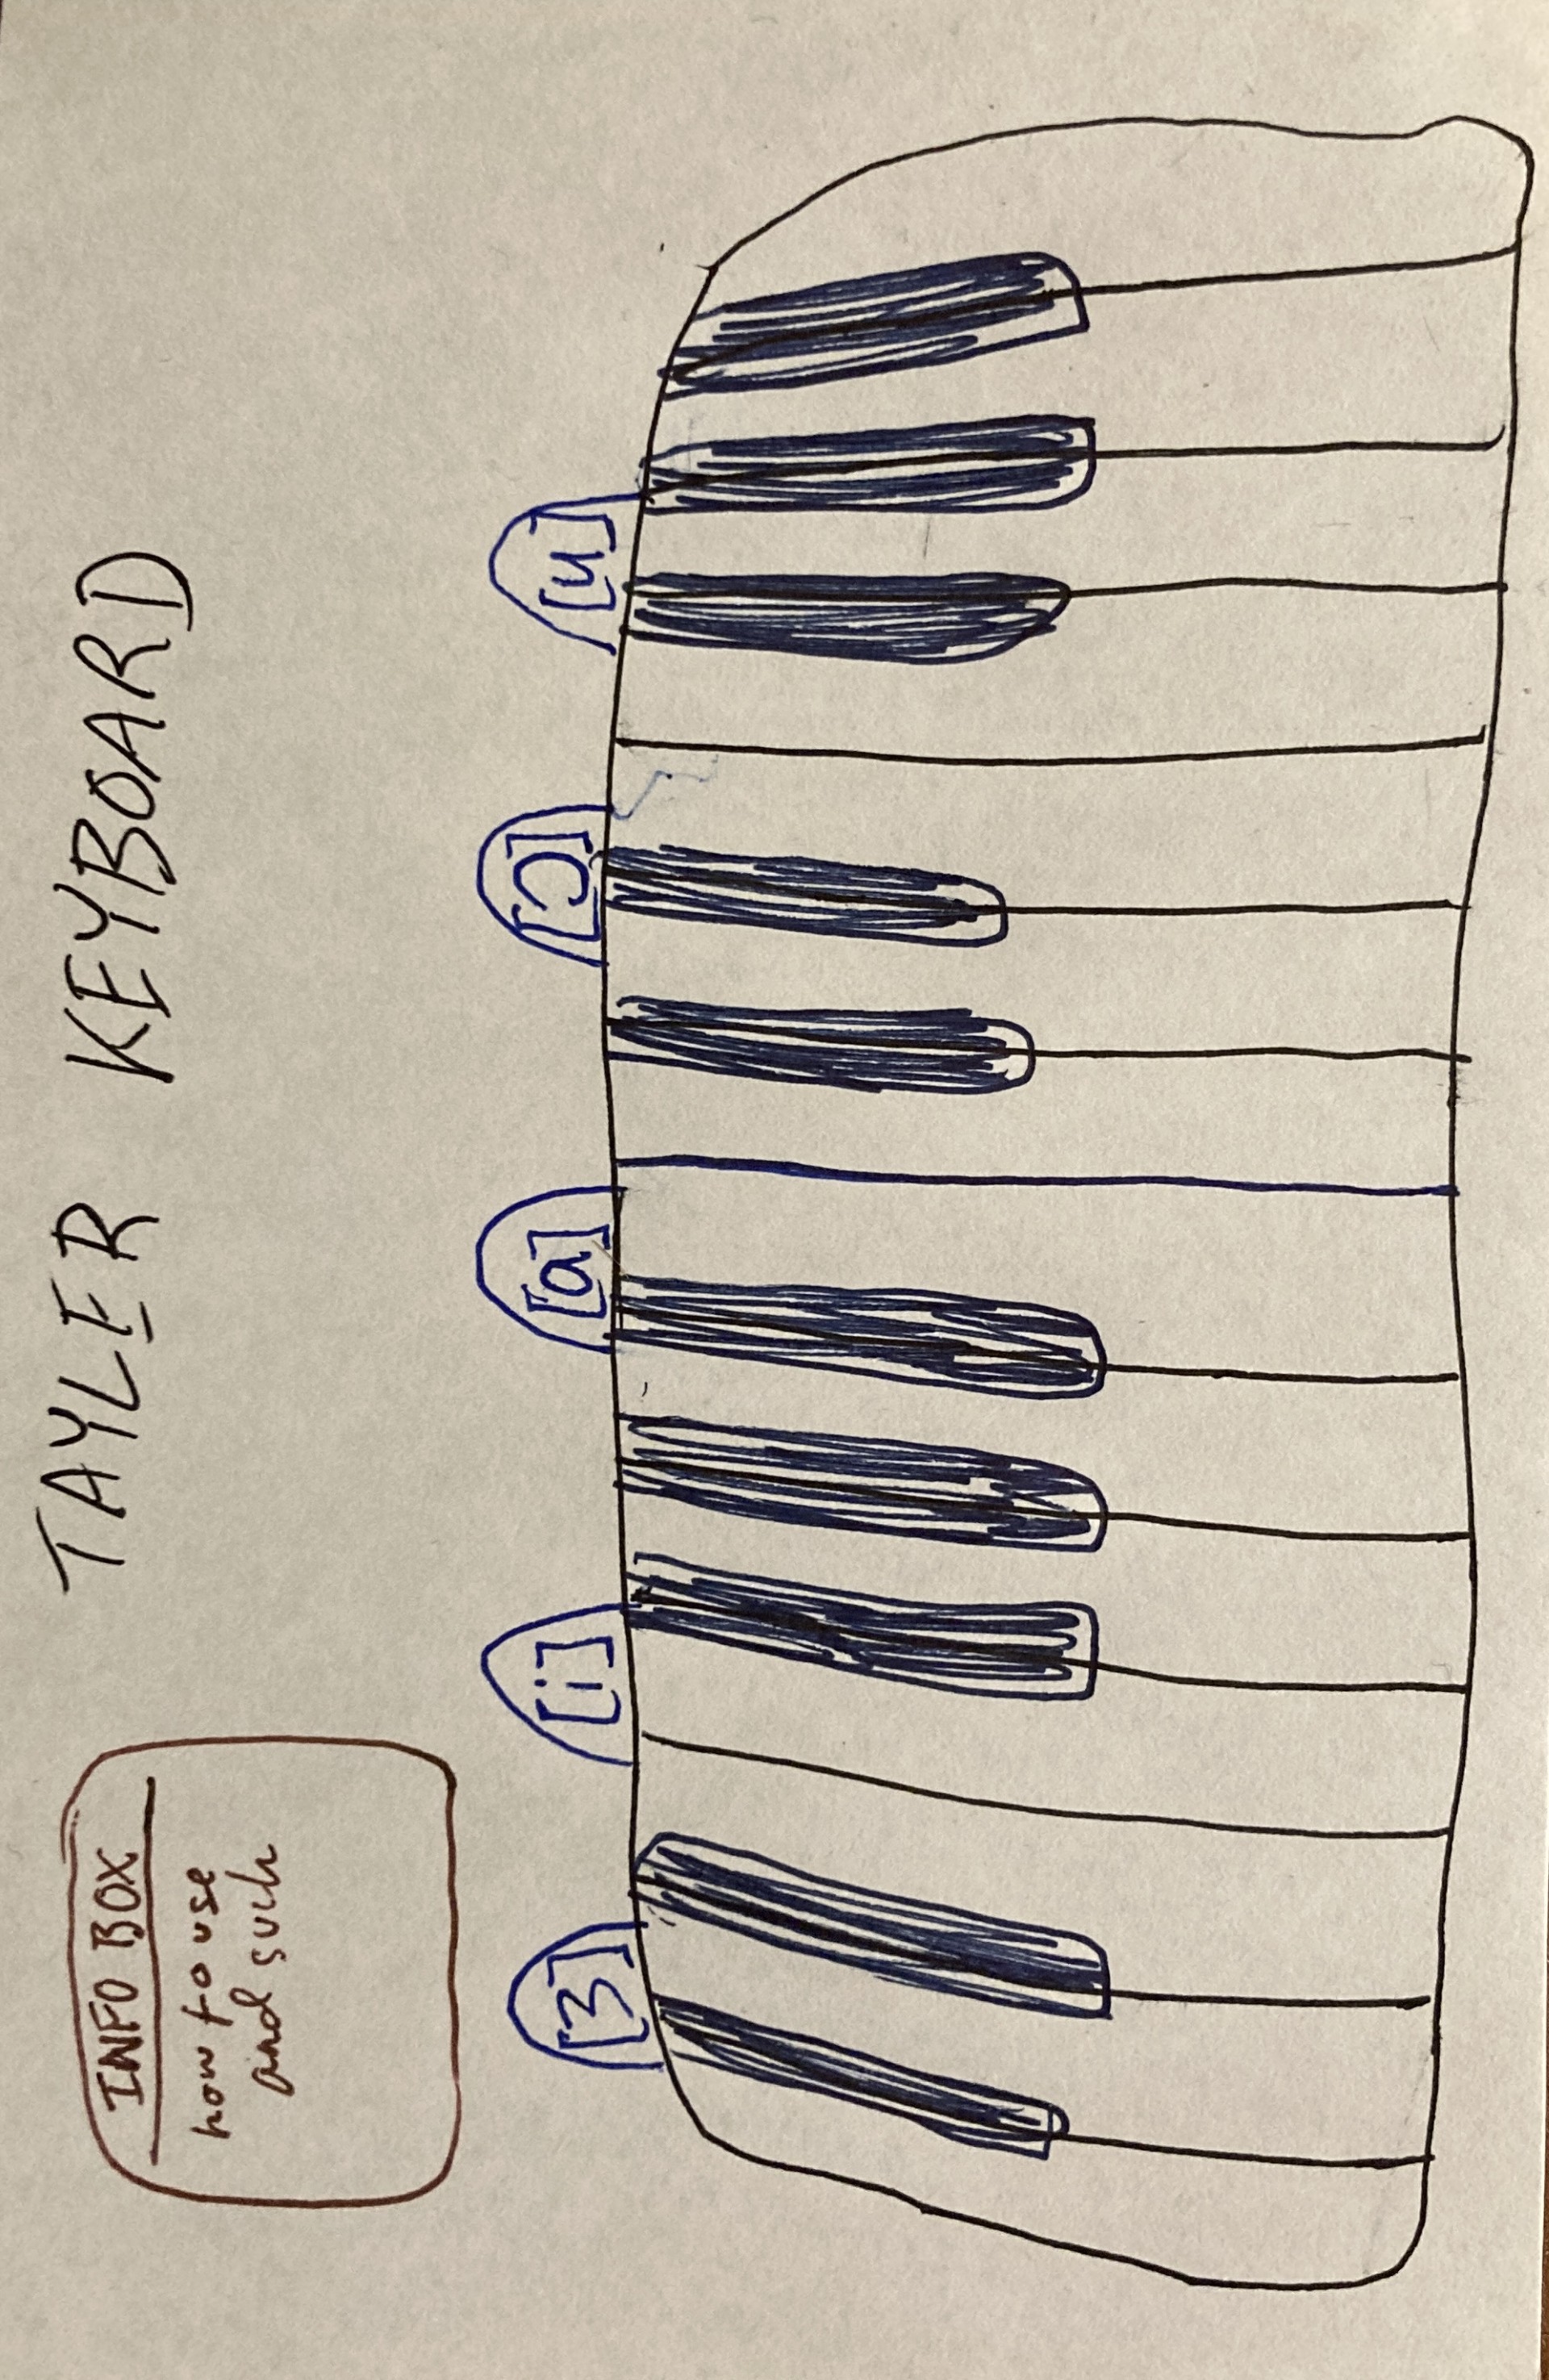 TAYLER KEYBOARD
INFO BOX
how to use
and such
[3] [i] [a] [ɔ] [u]